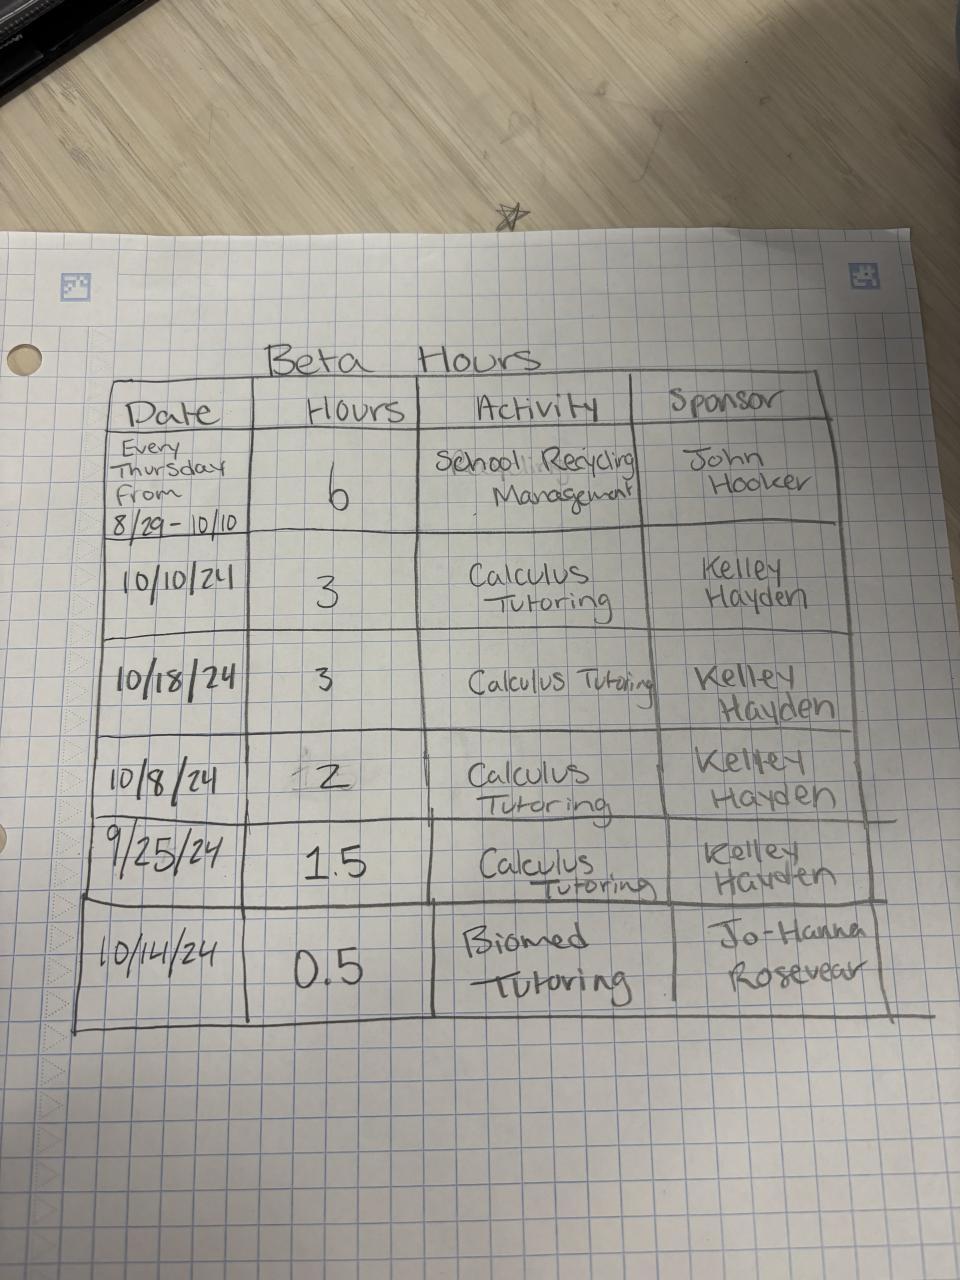 Beta Hours
Date Hours Activity Sponsor
Every
Thursday
from
8/29-10/10
6
School Recycling
Management
John
Hooker
10/10/24
3
Calculus
Tutoring
Kelley
Hayden
10/18/24
3
Calculus Tutoring
Kelley
Hayden
10/8/24
2
Calculus
Tutoring
Kelley
Hayden
9/25/24
1.5
Calculus
Tutoring
Kelley
Hayden
10/14/24
0.5
Biomed
Tutoring
Jo-Hanna
Rosevear